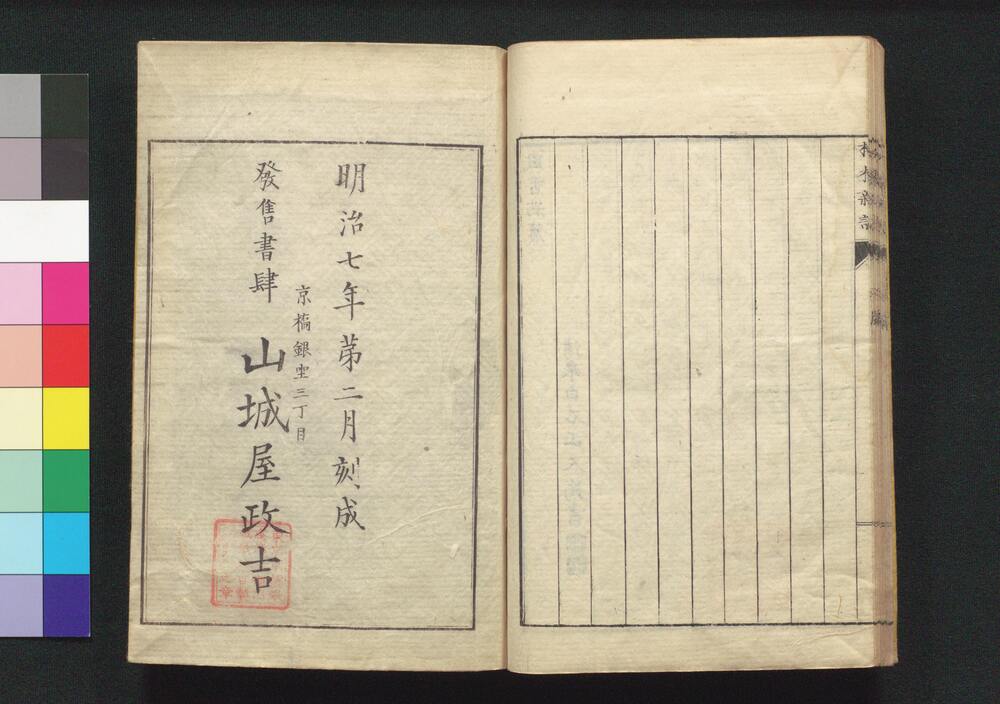 明治七年第二月刻成
京橋銀座三丁目
發售書肆 山城屋政吉